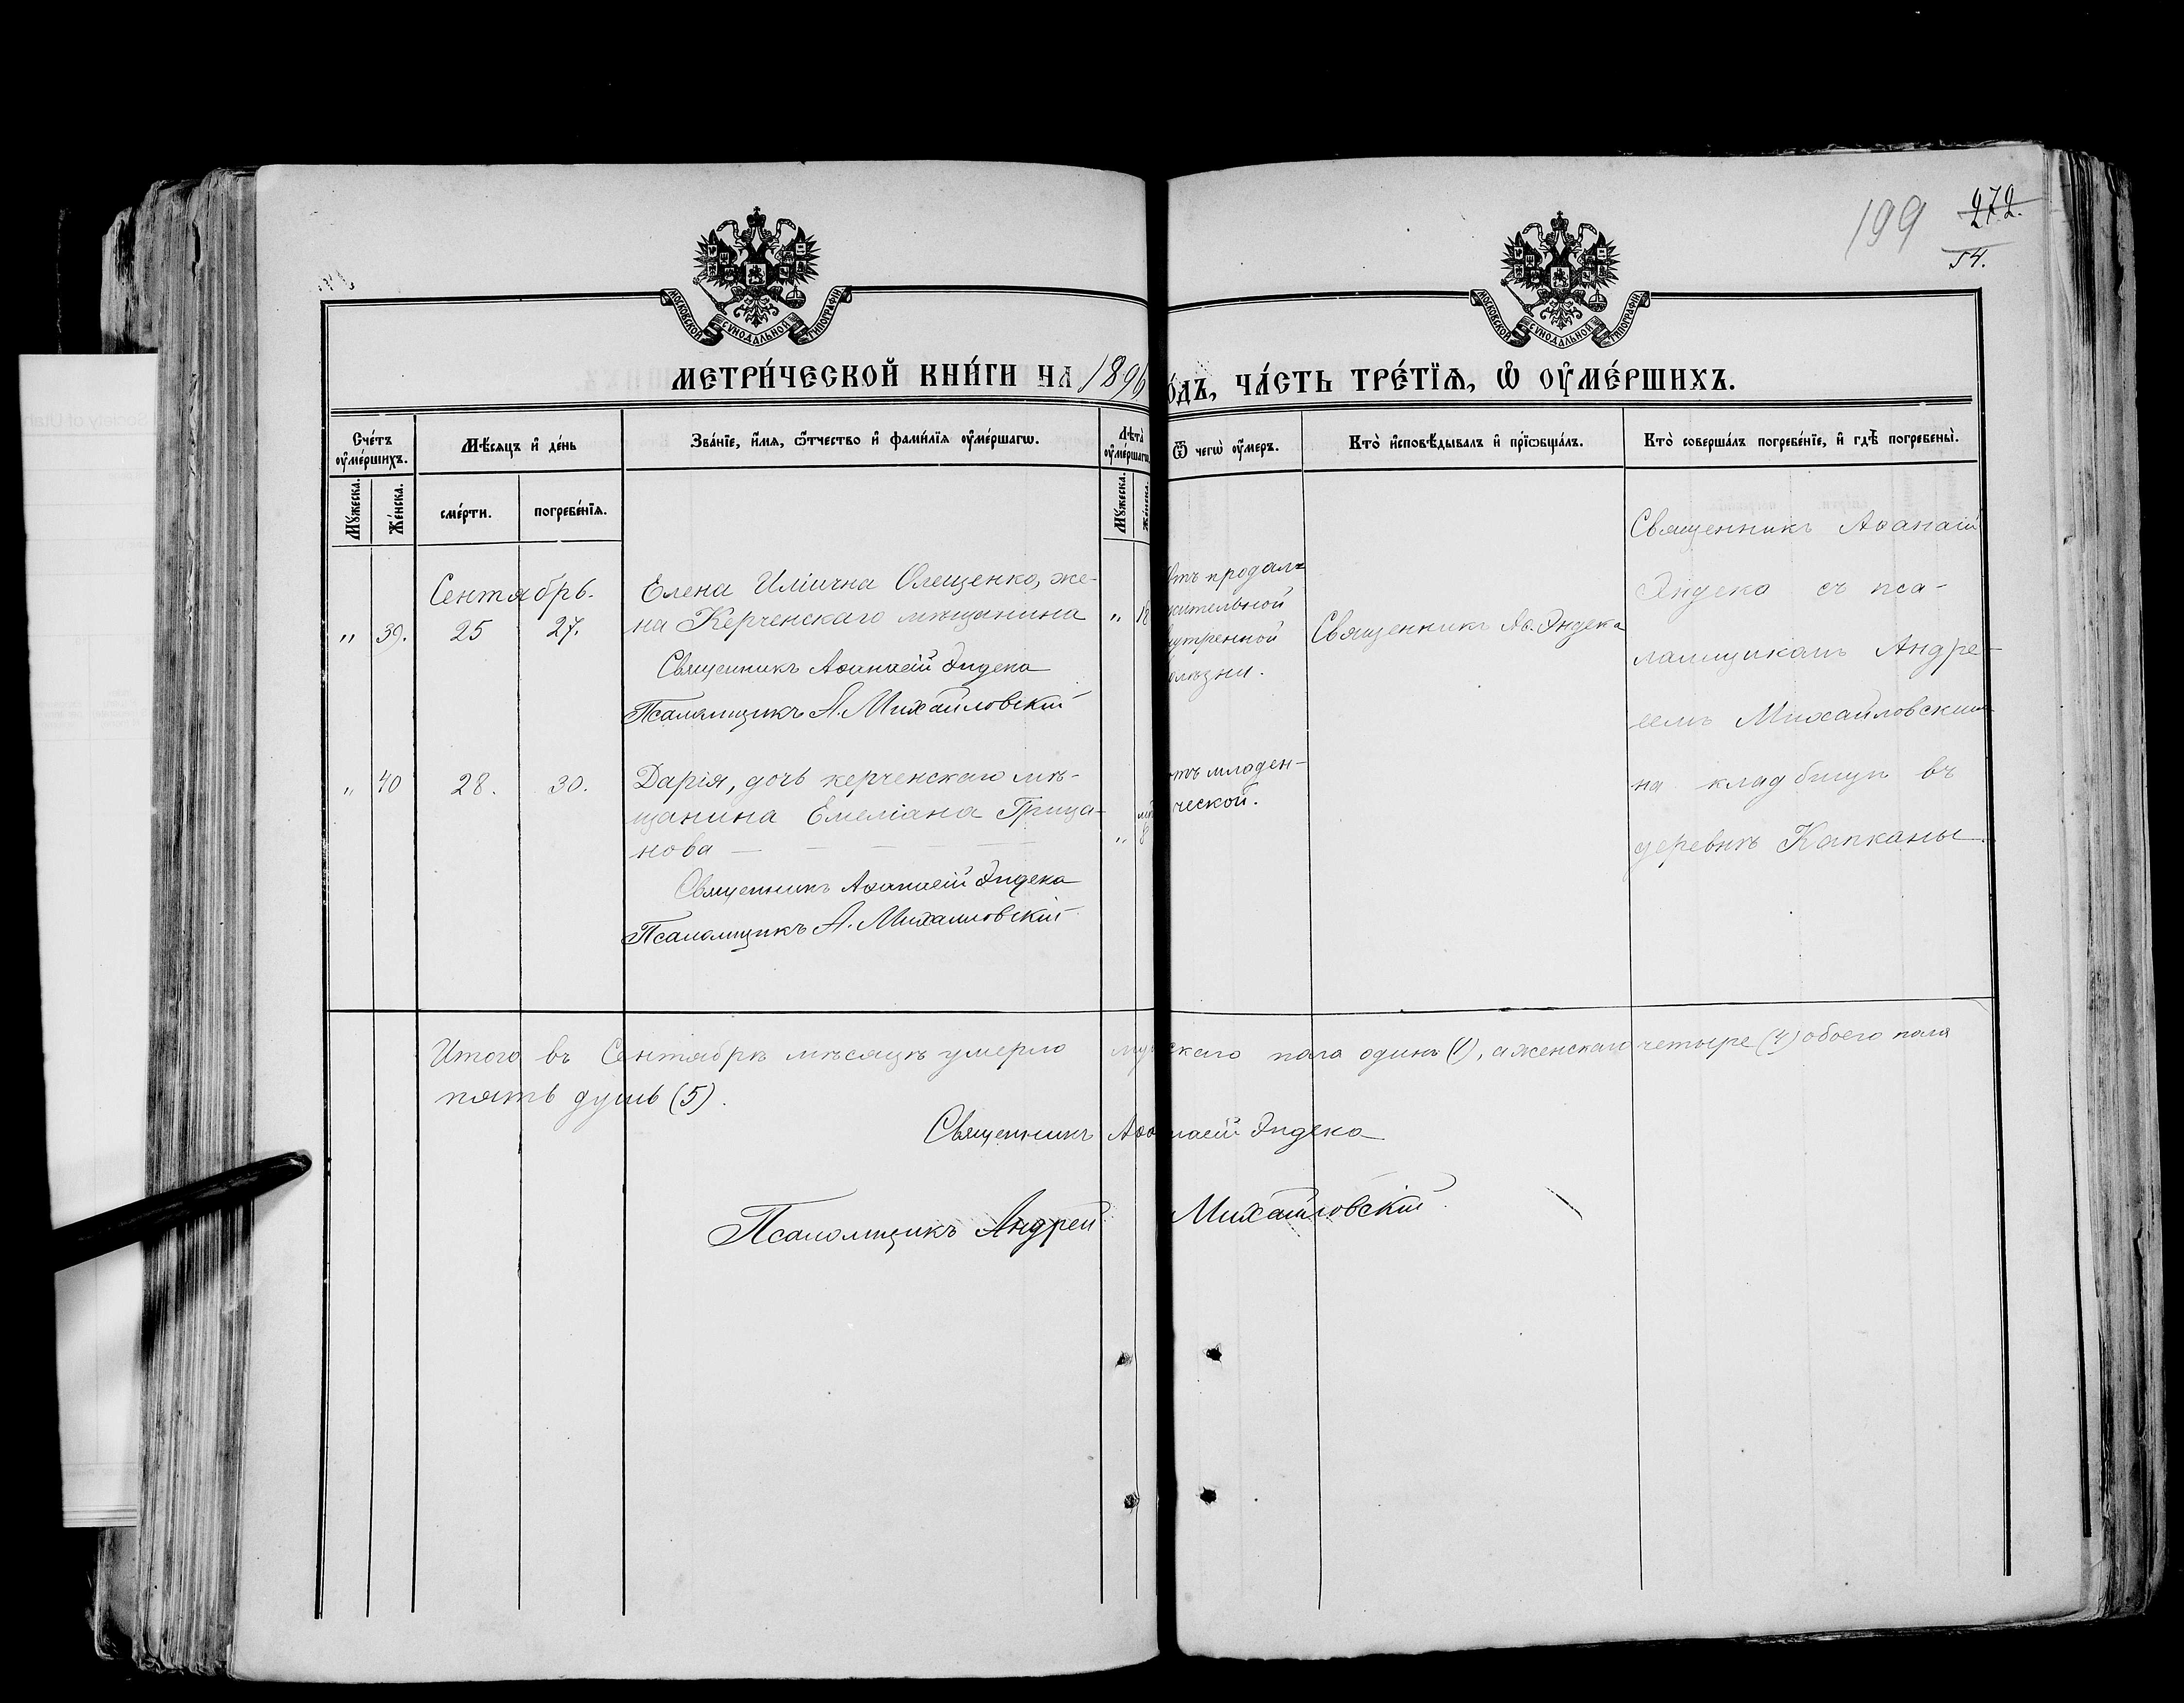 199 272.
54.
МОСКОВСКОЙ СѴНОДАЛЬНОЙ ТИПОГРАФІИ
МОСКОВСКОЙ СѴНОДАЛЬНОЙ ТИПОГРАФІИ
МЕТРИ́ЧЕСКОЙ КНИ́ГИ НА 1896
О́ДЪ, ЧА́СТЬ ТРЕ́ТІѦ, Ѡ҆ ОУ҆МЕ́РШИХЪ.
Сче́тъ оу҆ме́ршихъ.
Мѣ́сяцъ и҆ де́нь
Зва́нїе, и҆́мѧ, ѻ҆́тчество и҆ фами́лїѧ оу҆ме́ршагѡ.
Лѣта̀ оу҆ме́ршагѡ
Ѿ чегѡ̀ оу҆́меръ.
Кто̀ и҆сповѣ́дывалъ и҆ прїѡбща́лъ.
Кто̀ соверша́лъ погребе́нїе, и҆ гдѣ̀ погребены̀.
Мꙋ́жеска.
Же́нска.
сме́рти.
погребе́нїѧ.
Мꙋ́жеска.
Же́нска.
Сентябрь.
„ 39. 25 27.
Елена Иліична Олещенко, же-
на Керченскаго мѣщанина
„ 18
Священникъ Аѳанасій Эндека
Псаломщикъ А. Михайловскій
отъ продол-
жительной
внутренной
болѣзни.
Священникъ Аѳ. Эндека
Священникъ Аѳанасій
Эндека съ пса-
ломщикомъ Андре-
еемъ Михайловскимъ
на кладбищѣ въ
деревнѣ Капканы.
„ 40 28. 30.
Дарія, дочь керченскаго мѣ-
щанина Емеліана Грица-
нова — — — — —
„ 8
Священникъ Аѳанасій Эндека
Псаломщикъ А. Михайловскій
отъ младен-
ческой.
Итого въ Сентябрѣ мѣсяцѣ умерло мужскаго пола одинъ (1), а женскаго четыре (4) обоего пола
пять душъ (5).
Священникъ Аѳанасій Эндека
Псаломщикъ Андрей Михайловскій